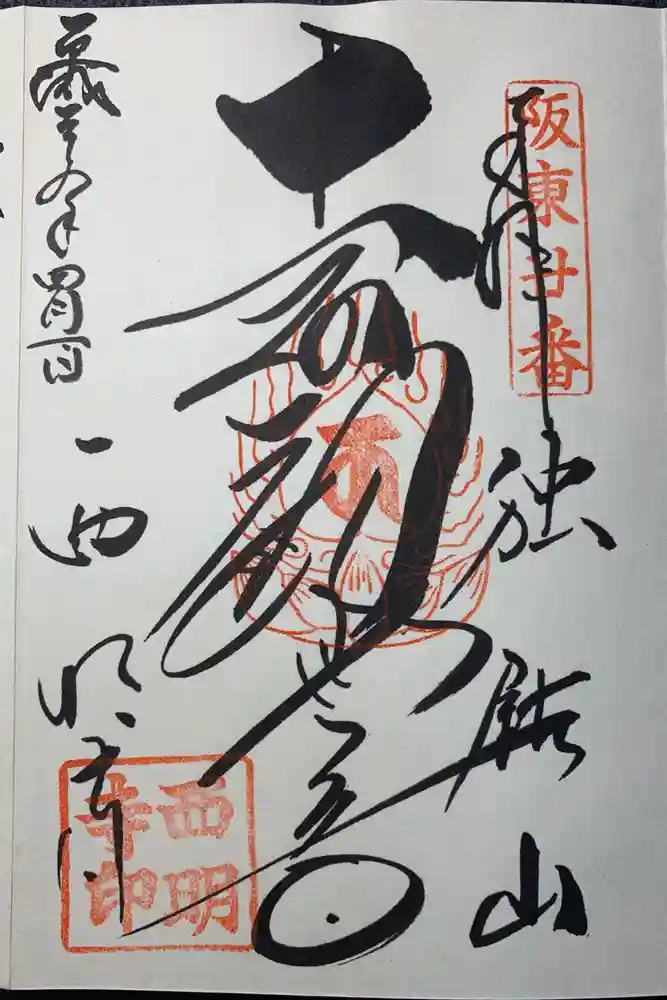 阪東廿番
奉拝
独鈷山
十一面観世音
西明寺
西明寺印